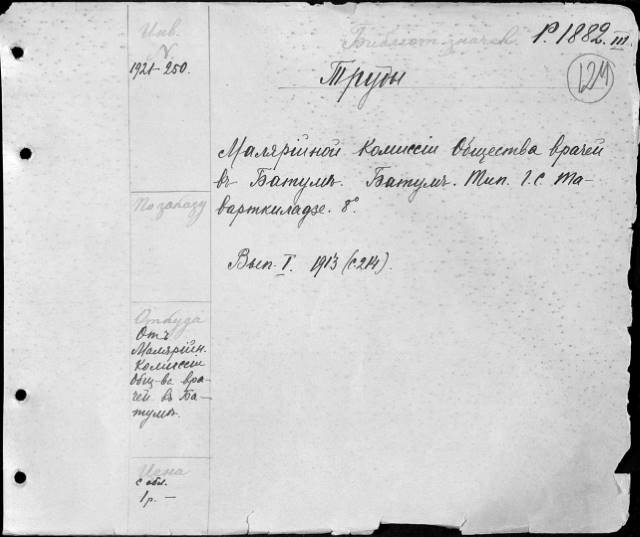 Инв.
1921-250.
Библиот. значек
P.1882.III
124
Труды
Малярійной Комиссіи Общества врачей
въ Батумѣ. Батумъ. Тип. І.С. Та-
варткиладзе. 8°.
Вып. I. 1913 (с214).
По заказу
Откуда
Отъ
Малярійн.
Комиссіи
Общ-ва вра-
чей въ Ба-
тумѣ.
Цена
с обл.
1 р. —